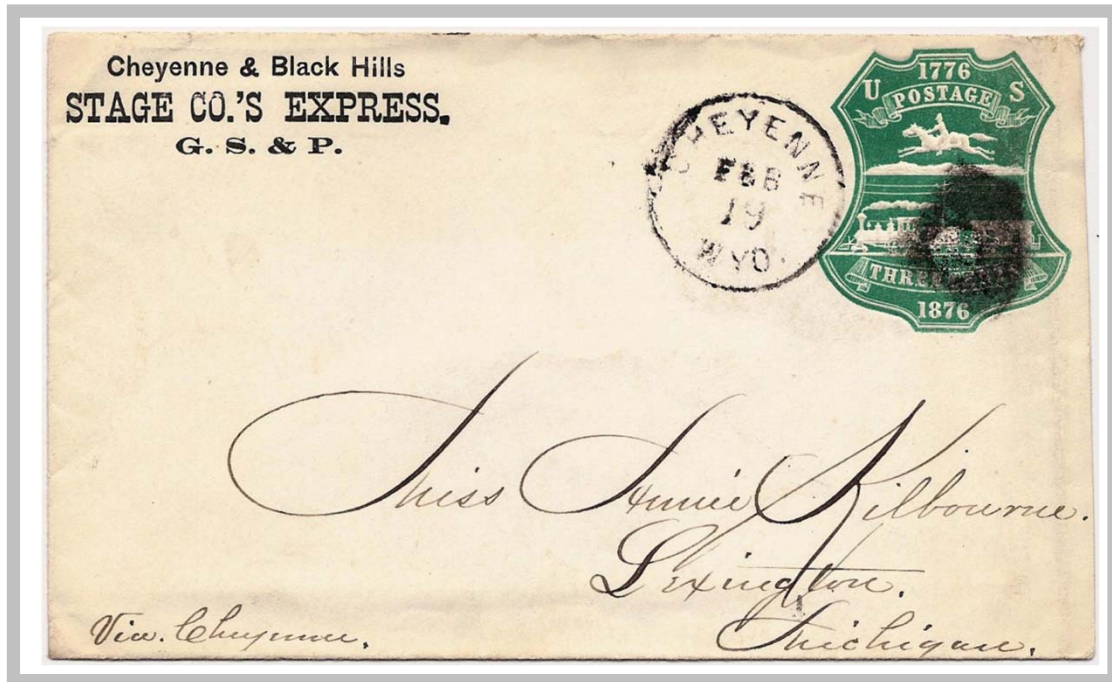 Cheyenne & Black Hills
STAGE CO.'S EXPRESS.
G. S. & P.
CHEYENNE
FEB
19
WYO.
1776
U POSTAGE S
THREE
1876
Miss Annie Kilbourne.
Lexington.
Michigan.
Via. Cheyenne.